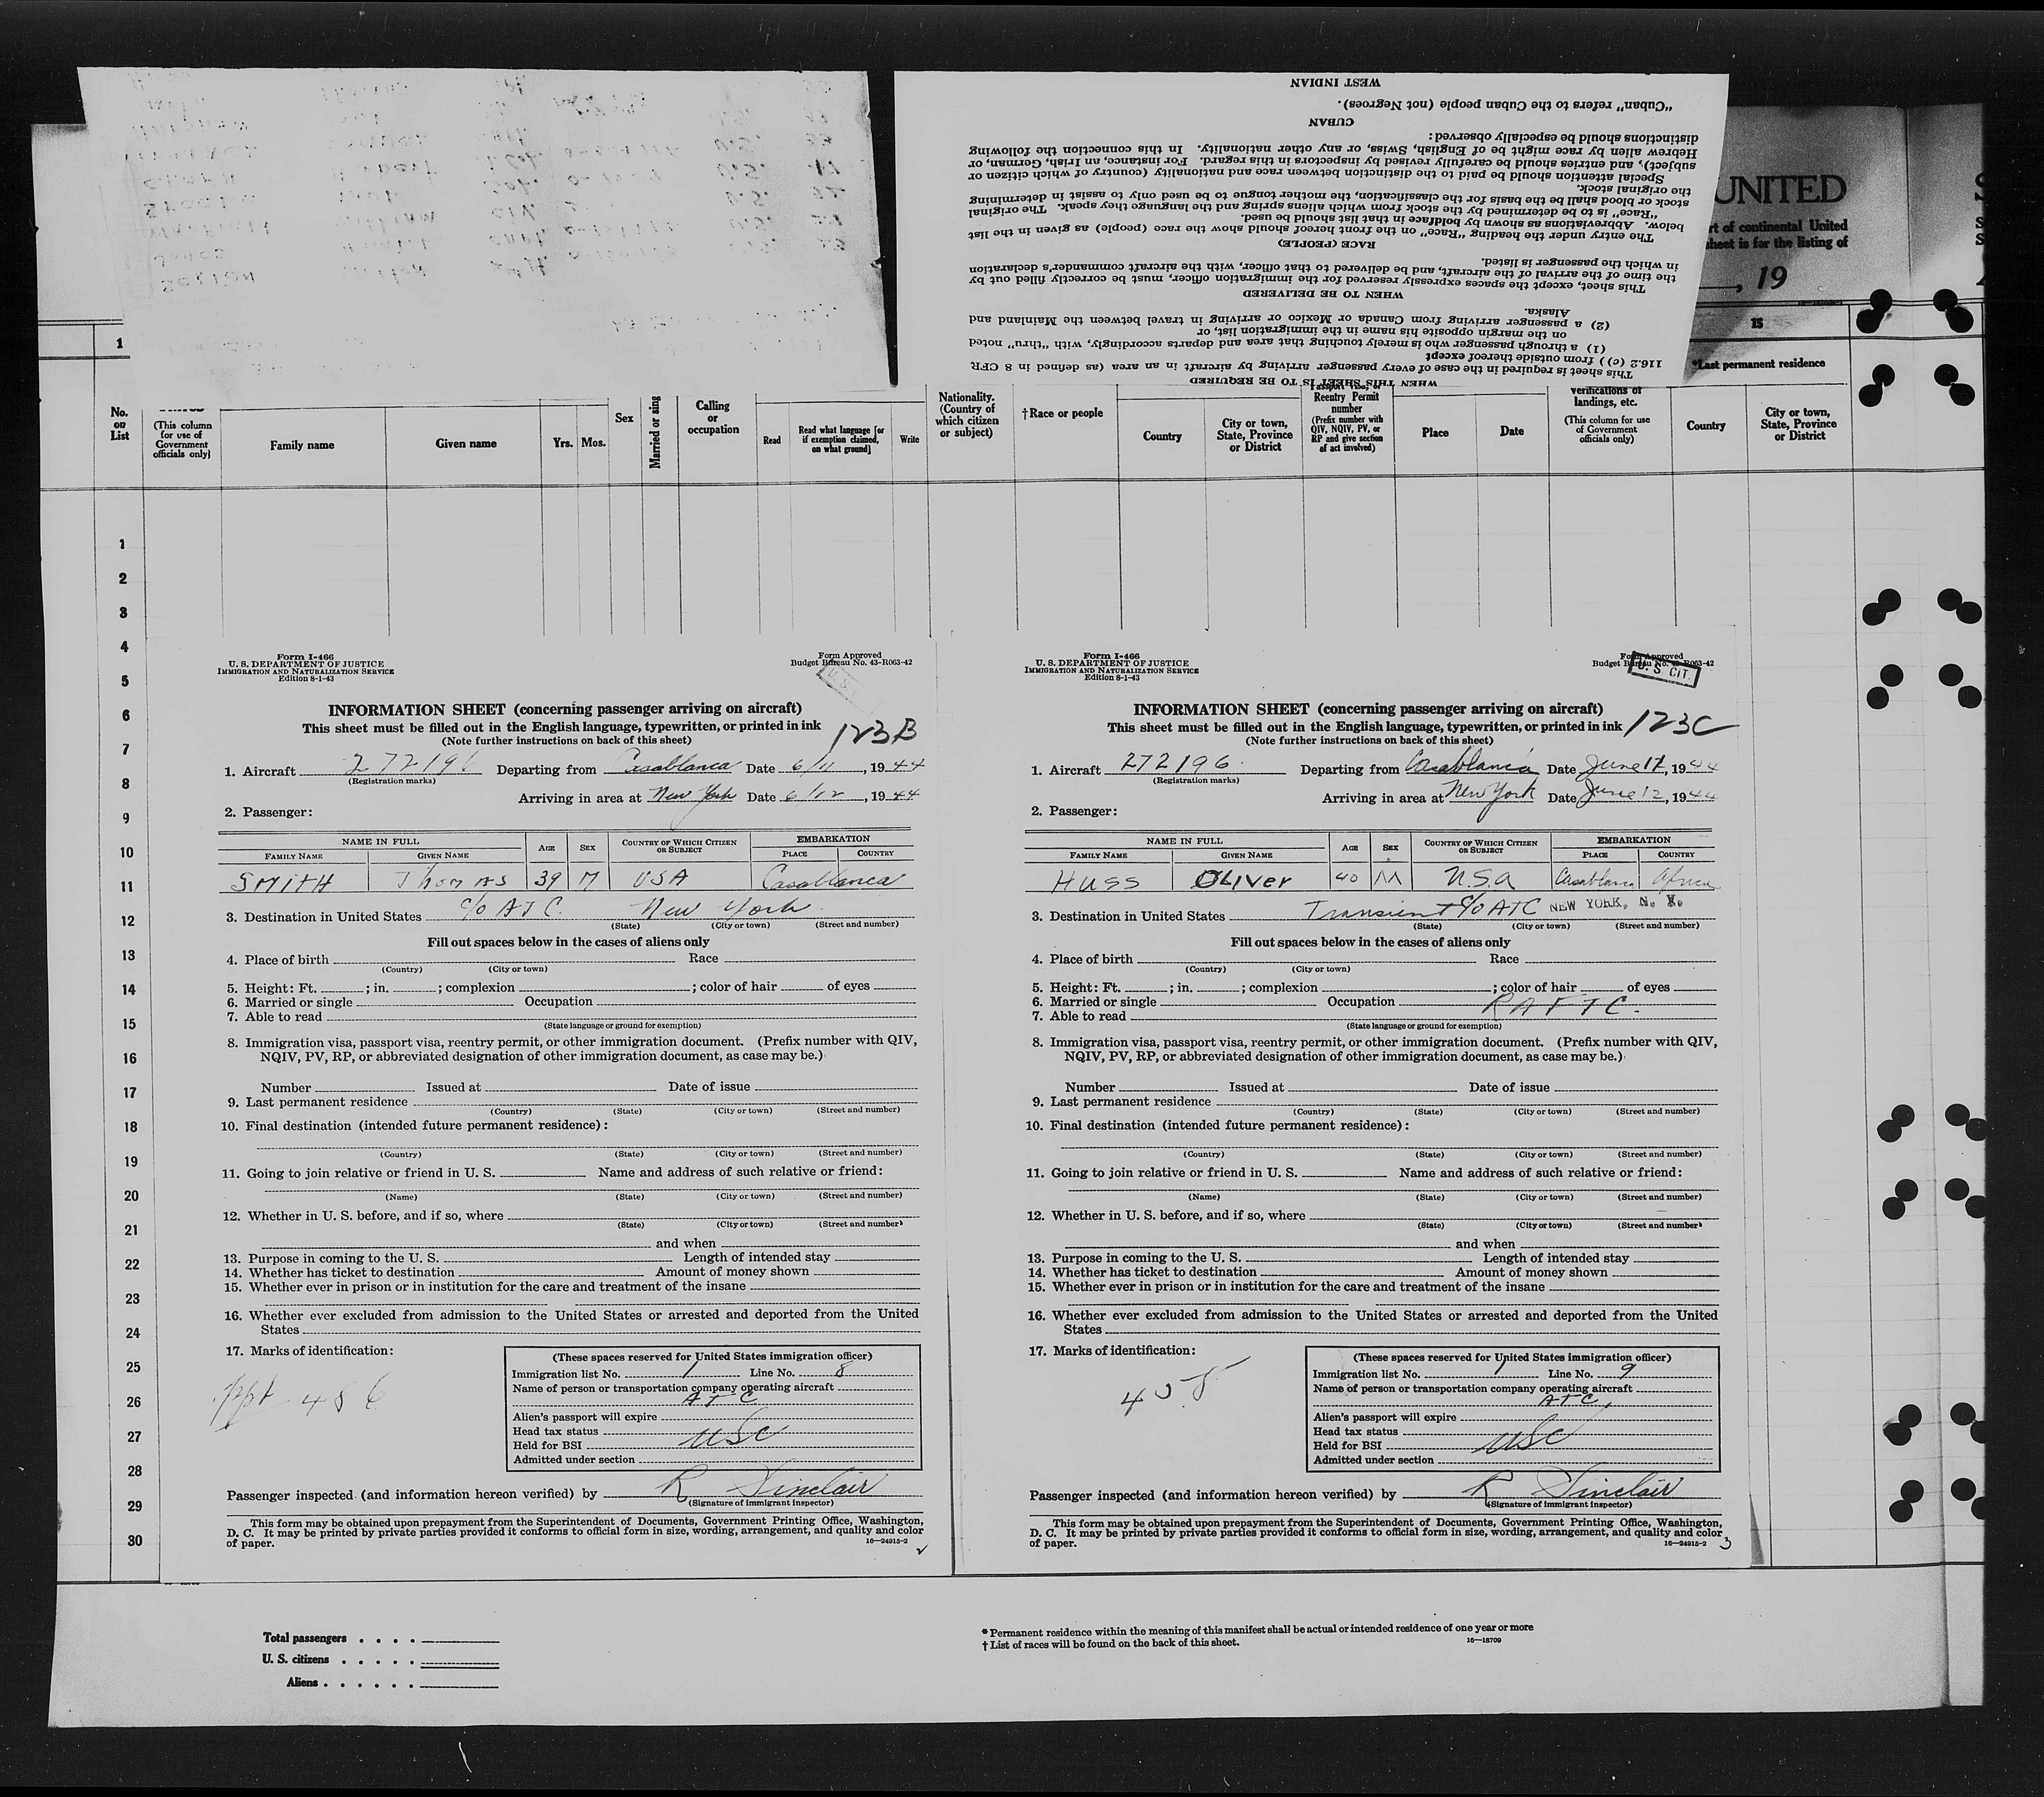 WEST INDIAN
"Cuban" refers to the Cuban people (not Negroes).
CUBAN
distinctions should be especially observed:
Hebrew alien by race might be of English, Swiss, or any other nationality. In this connection the following
subject), and entries should be carefully revised by inspectors in this regard. For instance, an Irish, German, or
Special attention should be paid to the distinction between race and nationality (country of which citizen or
the original stock.
stock or blood shall be the basis for the classification, the mother tongue to be used only to assist in determining
"Race" is to be determined by the stock from which aliens spring and the language they speak. The original
below. Abbreviations as shown by boldface in that list should be used.
The entry under the heading "Race" on the front hereof should show the race (people) as given in the list
RACE (PEOPLE)
in which the passenger is listed.
the time of the arrival of the aircraft, and be delivered to that officer, with the aircraft commander's declaration
This sheet, except the spaces expressly reserved for the immigration officer, must be correctly filled out by
WHEN TO BE DELIVERED
Alaska.
(2) a passenger arriving from Canada or Mexico or arriving in travel between the Mainland and
on the margin opposite his name in the immigration list, or
(1) a through passenger who is merely touching that area and departs accordingly, with "thru" noted
116.2 (c)) from outside thereof except
This sheet is required in the case of every passenger arriving by aircraft in an area (as defined in 8 CFR
WHEN THIS SHEET IS TO BE REQUIRED
UNITED
rt of continental United
sheet is for the listing of
, 19
1
15
*Last permanent residence
No. on List
(This column for use of Government officials only)
Family name
Given name
Yrs.
Mos.
Sex
Married or sing
Calling or occupation
Read
Read what language [or if exemption claimed, on what ground]
Write
Nationality. (Country of which citizen or subject)
†Race or people
Country
City or town, State, Province or District
Reentry Permit number (Prefix number with QIV, NQIV, PV, or RP and give section of act involved)
Place
Date
verifications of landings, etc.
(This column for use of Government officials only)
Country
City or town, State, Province or District
1
2
3
4
5
6
7
8
9
10
11
12
13
14
15
16
17
18
19
20
21
22
23
24
25
26
27
28
29
30
Form I-466
U. S. DEPARTMENT OF JUSTICE
IMMIGRATION AND NATURALIZATION SERVICE
Edition 8-1-43
Form Approved
Budget Bureau No. 43-R063-42
INFORMATION SHEET (concerning passenger arriving on aircraft)
This sheet must be filled out in the English language, typewritten, or printed in ink
123B
(Note further instructions on back of this sheet)
1. Aircraft 272196 Departing from Casablanca Date 6/11, 1944
(Registration marks)
Arriving in area at New York Date 6/12, 1944
2. Passenger:
NAME IN FULL
AGE SEX COUNTRY OF WHICH CITIZEN OR SUBJECT EMBARKATION
FAMILY NAME GIVEN NAME PLACE COUNTRY
SMITH Thomas 39 M USA Casablanca
3. Destination in United States c/o ATC New York
(State) (City or town) (Street and number)
Fill out spaces below in the cases of aliens only
4. Place of birth Race
(Country) (City or town)
5. Height: Ft. ; in. ; complexion ; color of hair of eyes
6. Married or single Occupation
7. Able to read
(State language or ground for exemption)
8. Immigration visa, passport visa, reentry permit, or other immigration document. (Prefix number with QIV,
NQIV, PV, RP, or abbreviated designation of other immigration document, as case may be.)
Number Issued at Date of issue
9. Last permanent residence
(Country) (State) (City or town) (Street and number)
10. Final destination (intended future permanent residence):
(Country) (State) (City or town) (Street and number)
11. Going to join relative or friend in U. S. Name and address of such relative or friend:
(Name) (State) (City or town) (Street and number)
12. Whether in U. S. before, and if so, where
(State) (City or town) (Street and number)
and when
13. Purpose in coming to the U. S. Length of intended stay
14. Whether has ticket to destination Amount of money shown
15. Whether ever in prison or in institution for the care and treatment of the insane
16. Whether ever excluded from admission to the United States or arrested and deported from the United
States
17. Marks of identification:
ppt 486
(These spaces reserved for United States immigration officer)
Immigration list No. 1 Line No. 8
Name of person or transportation company operating aircraft
ATC
Alien's passport will expire
Head tax status
USC
Held for BSI
Admitted under section
Passenger inspected (and information hereon verified) by R Sinclair
(Signature of immigrant inspector)
This form may be obtained upon prepayment from the Superintendent of Documents, Government Printing Office, Washington,
D. C. It may be printed by private parties provided it conforms to official form in size, wording, arrangement, and quality and color
of paper. 16—24915-2
2
Form I-466
U. S. DEPARTMENT OF JUSTICE
IMMIGRATION AND NATURALIZATION SERVICE
Edition 8-1-43
Form Approved
Budget Bureau No. 43-R063-42
U. S CIT.
INFORMATION SHEET (concerning passenger arriving on aircraft)
This sheet must be filled out in the English language, typewritten, or printed in ink
123C
(Note further instructions on back of this sheet)
1. Aircraft 272196 Departing from Casablanca Date June 11, 1944
(Registration marks)
Arriving in area at New York Date June 12, 1944
2. Passenger:
NAME IN FULL
AGE SEX COUNTRY OF WHICH CITIZEN OR SUBJECT EMBARKATION
FAMILY NAME GIVEN NAME PLACE COUNTRY
HUSS OLIVER 40 M U.S.A Casablanca Africa
3. Destination in United States Transient c/o ATC NEW YORK, N. Y.
(State) (City or town) (Street and number)
Fill out spaces below in the cases of aliens only
4. Place of birth Race
(Country) (City or town)
5. Height: Ft. ; in. ; complexion ; color of hair of eyes
6. Married or single Occupation RAFTC.
7. Able to read
(State language or ground for exemption)
8. Immigration visa, passport visa, reentry permit, or other immigration document. (Prefix number with QIV,
NQIV, PV, RP, or abbreviated designation of other immigration document, as case may be.)
Number Issued at Date of issue
9. Last permanent residence
(Country) (State) (City or town) (Street and number)
10. Final destination (intended future permanent residence):
(Country) (State) (City or town) (Street and number)
11. Going to join relative or friend in U. S. Name and address of such relative or friend:
(Name) (State) (City or town) (Street and number)
12. Whether in U. S. before, and if so, where
(State) (City or town) (Street and number)
and when
13. Purpose in coming to the U. S. Length of intended stay
14. Whether has ticket to destination Amount of money shown
15. Whether ever in prison or in institution for the care and treatment of the insane
16. Whether ever excluded from admission to the United States or arrested and deported from the United
States
17. Marks of identification:
458
(These spaces reserved for United States immigration officer)
Immigration list No. 1 Line No. 9
Name of person or transportation company operating aircraft
ATC
Alien's passport will expire
Head tax status
USC
Held for BSI
Admitted under section
Passenger inspected (and information hereon verified) by R Sinclair
(Signature of immigrant inspector)
This form may be obtained upon prepayment from the Superintendent of Documents, Government Printing Office, Washington,
D. C. It may be printed by private parties provided it conforms to official form in size, wording, arrangement, and quality and color
of paper. 16—24915-2
3
Total passengers . . . .
U. S. citizens . . . . .
Aliens . . . . . .
* Permanent residence within the meaning of this manifest shall be actual or intended residence of one year or more
† List of races will be found on the back of this sheet. 16—18709